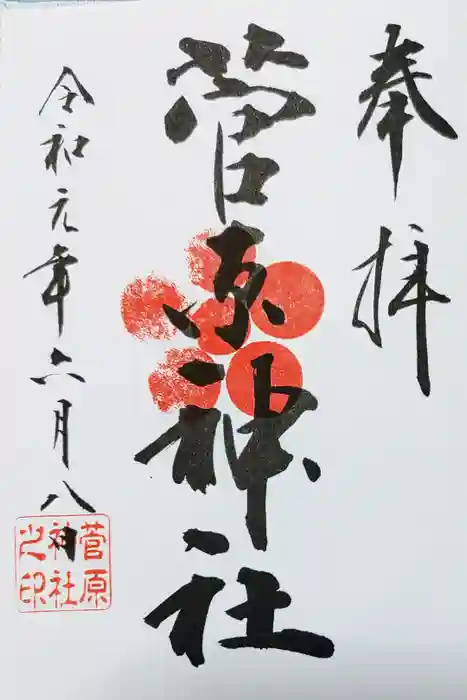 奉拝
菅原神社
令和元年六月八日
菅原
神社
之印